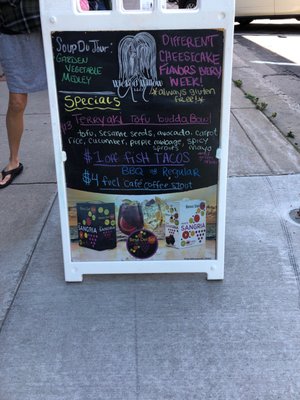 Soup Du Jour:
Garden
Vegetable
Medley
Different
Cheesecake
Flavors Every
Week!
*always gluten
free!*
Specials
$13 Terryaki Tofu budda Bowl!
tofu, sesame seeds, avocado, carrot
rice, cucumber, purple cabbage, spicy
sprouts mayo
$1 off Fish TACOS
BBQ or Regular
$4 fuel Cafe coffee stout
SANGRIA
SANGRIA